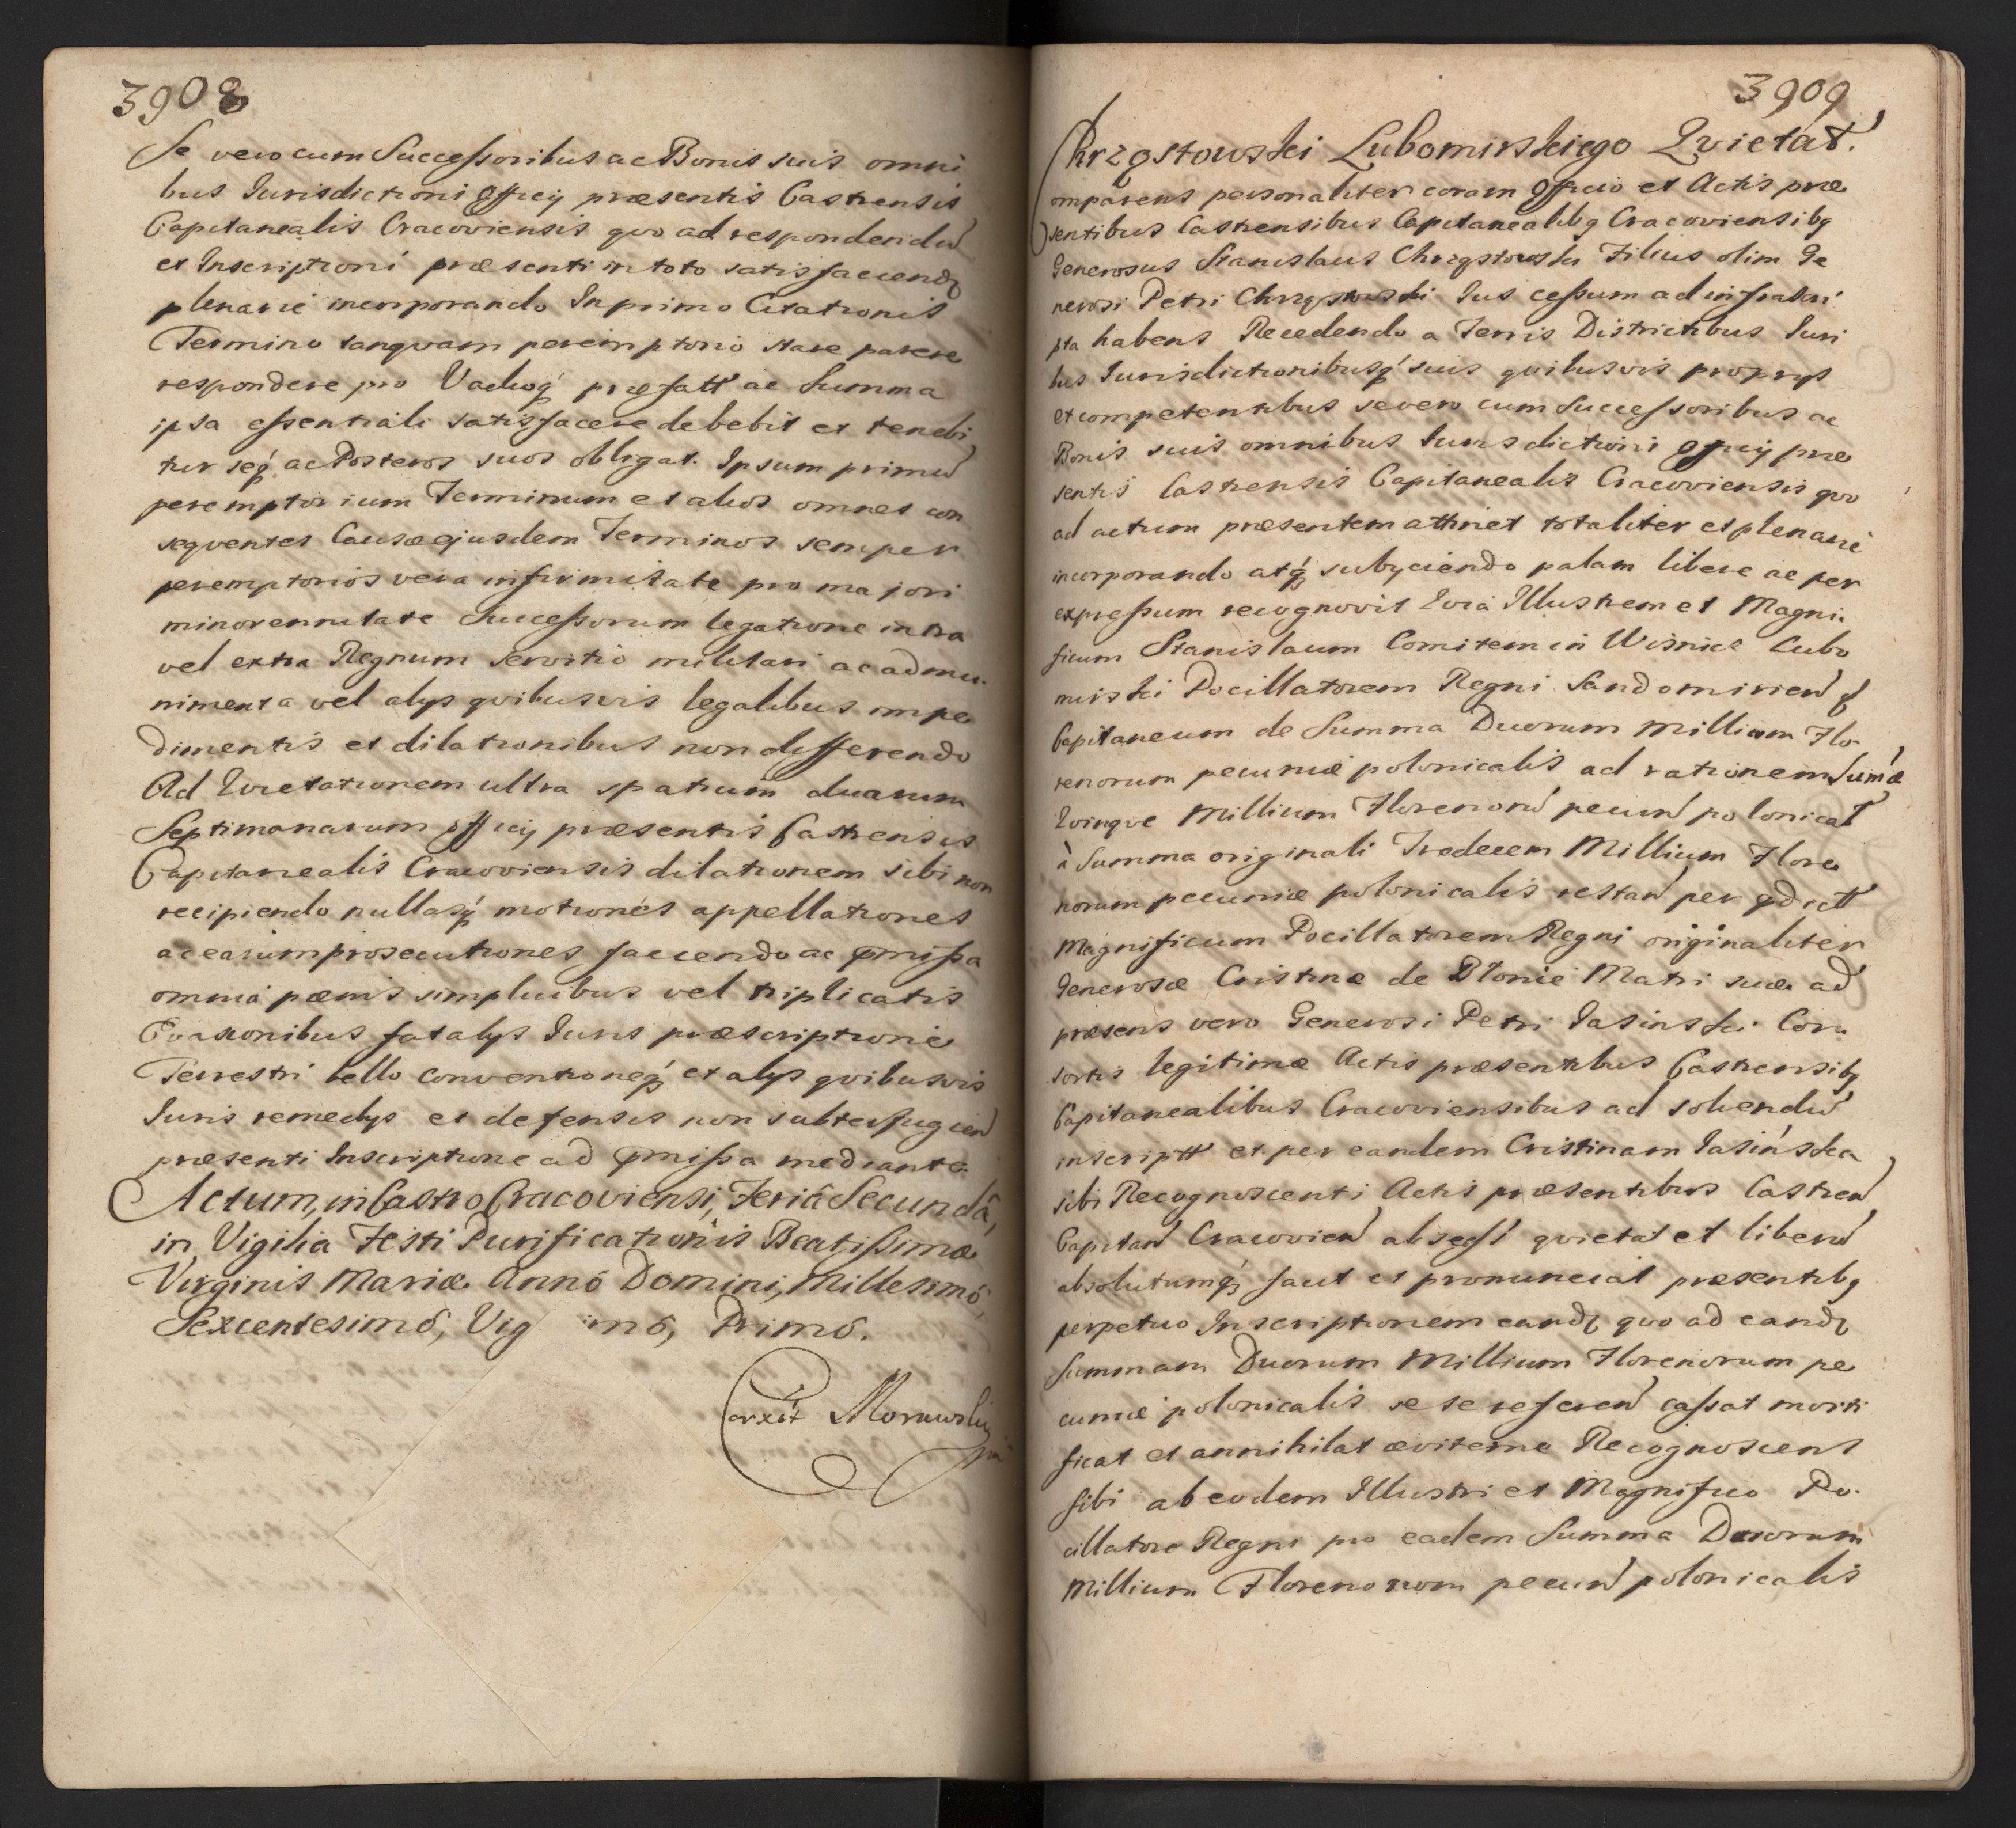 3908
Se vero cum Successoribus ac Bonis suis omni
bus Jurisdictioni Officij præsentis Castrensis
Capitanealis Cracoviensis qvo ad respondendu
et Inscriptioni præsenti in toto satisfaciend
plenarie incorporando In primo Citationis
Termino tanqvam peremptorio stare parere
respondere pro Vadioq præfatt ac Summa
ipsa essentiali satisfacere debebit et tenebi
tur seq ac Posteros suos obligat. Ipsum primu
peremptorium Terminum et alios omnes con
seqventes Causæ ejusdem Terminos semper
peremptorios vera infirmitate pro majori
minorennitate Successorum legatione intra
vel extra Regnum servitio militari ac admu
nimenta vel alys qvibusvis legalibus impe
dimentis et dilationibus non differendo
Ad Qvietationem ultra spatium duarum
Septimanarum officij præsentis Castrensis
Capitanealis Cracoviensis dilationem sibi non
recipiendo nullasq motiones appellationes
ac earum prosecutiones faciendo ac pmissa
omnia pænis simplicibus vel triplicatis
Evasionibus fatalys Juris præscriptione
Terrestri bello conventioneq et alys qvibusvis
Juris remedys et defensis non subterfugien
præsenti Inscriptione ad pmissa mediante.
Actum, in Castro Cracoviensi, Feriâ Secundâ,
in Vigilia Festi Purificationis Beatissimæ
Virginis Mariæ Annô Domini, Millesimô,
Sexcentesimô, Vig imô, Primô.
Corxit Morawski
3909
Chrząstowski Lubomirskiego Qvietat.
Comparens personaliter coram Officio et Actis præ
sentibus Castrensibus Capitanealibq Cracoviensibq
Generosus Stanislaus Chrząstowski Filius olim Ge
nerosi Petri Chrząstowski Jus cessum ad infrascri
pta habens Recedendo a Terris Districtibus Juri
bus Jurisdictionibusq suis qvibusvis proprys
et competentibus se vero cum Successoribus ac
Bonis suis omnibus Jurisdictioni officij præ
sentis Castrensis Capitanealis Cracoviensis qvo
ad actum præsentem attinet totaliter et plenarie
incorporando atq subyciendo palam libere ac per
expressum recognovit Qvia Illustrem et Magni
ficum Stanislaum Comitem in Wisnicz Lubo
mirski Pocillatorem Regni Sandomirien &
Capitaneum de Summa Duorum Millium Flo
renorum pecuniæ polonicalis ad rationem Sumæ
Qvinqve Millium Florenoru pecun polonical
à Summa originali Tredecem Millium Flore
norum pecuniæ polonicalis restan per pdictt
Magnificum Pocillatorem Regni originaliter
Generosæ Cristinæ de Błonie Matri suæ ad
præsens vero Generosi Petri Jasinski Con
sortis legitimæ Actis præsentibus Castrensibq
Capitanealibus Cracoviensibus ad solvendu
inscriptt et per eandem Cristinam Jasińska
sibi Recognoscenti Actis præsentibus Castren
Capitan Cracovien qvietat et liberu
absolutumq facit et pronunciat præsentibq
perpetuo Inscriptionem eand qvo ad eand
Summam Duorum Millium Florenorum pe
cuniæ polonicalis se se referen cassat morti
ficat et annihilat æviterne Recognoscens
sibi ab eodem Illustri et Magnifico Po
cillatore Regni pro eadem Summa Duorum
Millium Florenorum pecun polonicalis